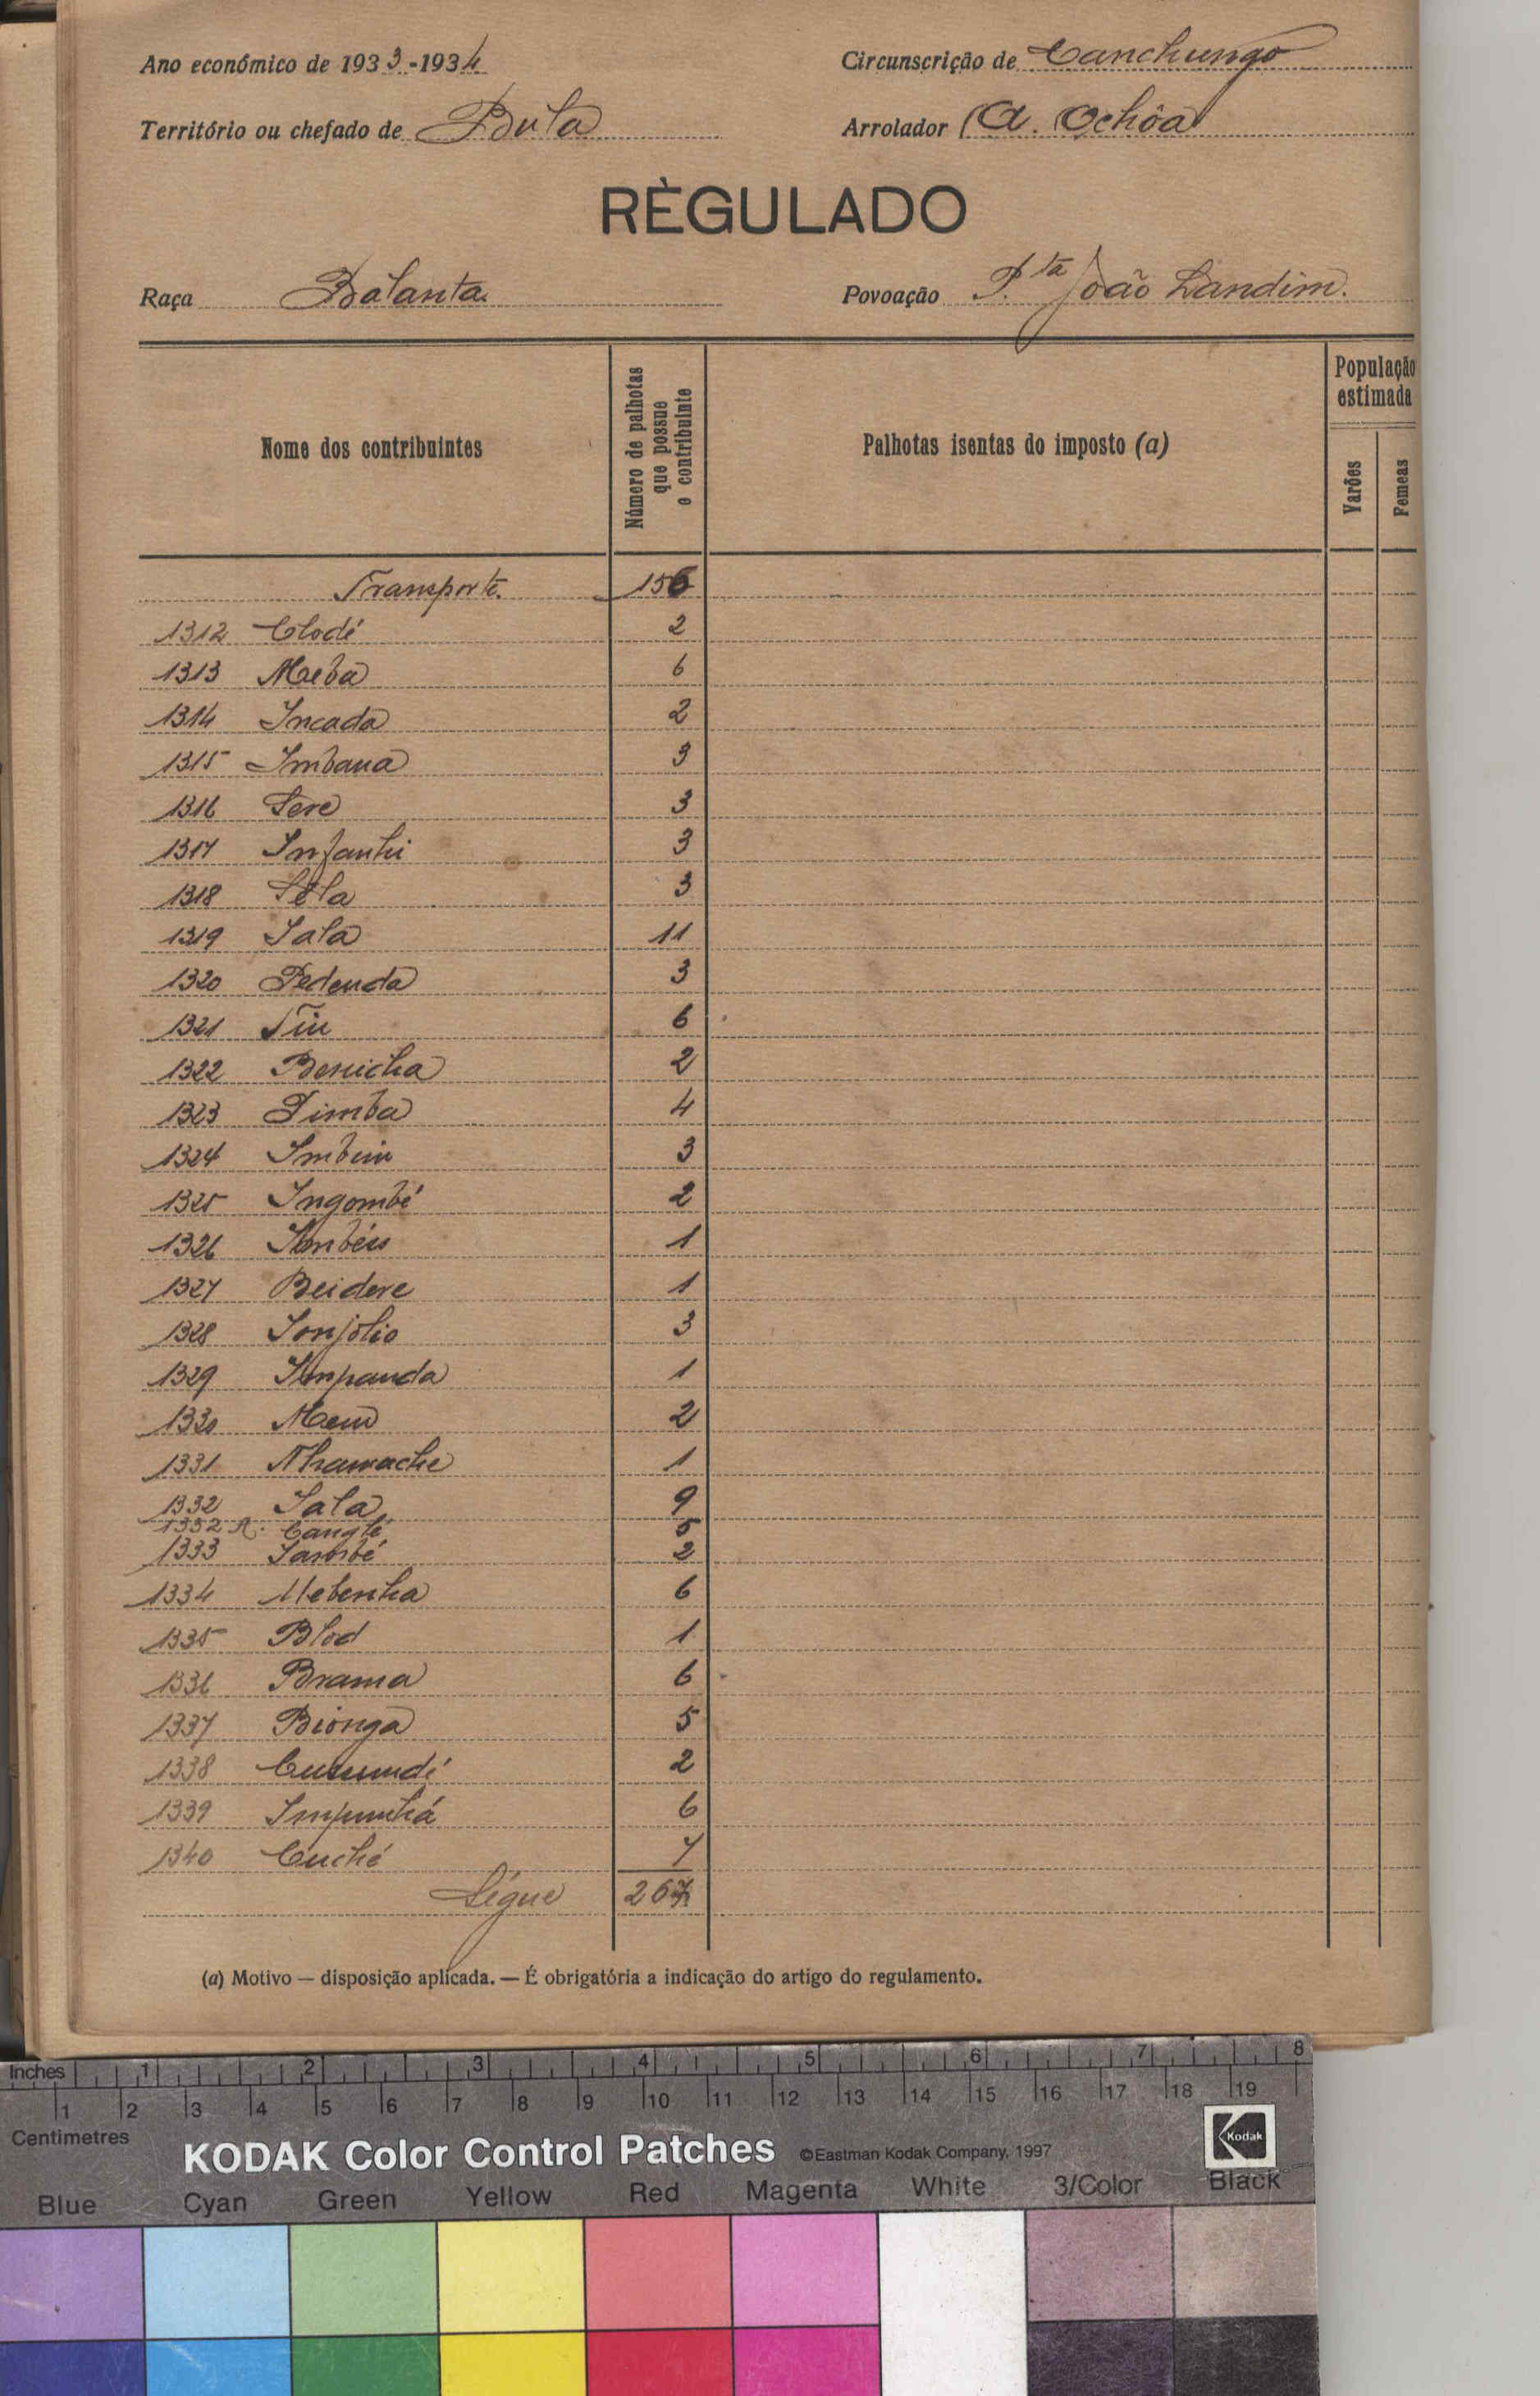 Ano económico de 1933-1934
Circunscrição de Canchungo
Território ou chefado de Bula
Arrolador A. Ochôa
RÈGULADO
Raça Balanta
Povoação P.ta João Landim.
Nome dos contribuintes
Número de palhotas que possue o contribuinte
Palhotas isentas do imposto (a)
População estimada
Varões
Femeas
Transporte. 156
1312 Clodé 2
1313 Maeba 6
1314 Incada 2
1315 Imbana 3
1316 Sere 3
1317 Infanhi 3
1318 3
1319 Sala 11
1320 Pedenda 3
1321 Tiu 6
1322 Benicha 2
1323 Pimba 4
1324 3
1325 Ingombé 2
1326 1
1327 Beidere 1
1328 3
1329 Impanda 1
1330 2
1331 Nhamache 1
1332 Sala 9
1332 A. Canglé 5
1333 Sambé 2
1334 6
1335 Blod 1
1336 Brama 6
1337 Bionga 5
1338 2
1339 Impunhá 6
1340 Cuché 7
Ségue 267
(a) Motivo — disposição aplicada. — É obrigatória a indicação do artigo do regulamento.
Inches 1 2 3 4 5 6 7 8
1 2 3 4 5 6 7 8 9 10 11 12 13 14 15 16 17 18 19
Centimetres
KODAK Color Control Patches ©Eastman Kodak Company, 1997 Kodak
Blue Cyan Green Yellow Red Magenta White 3/Color Black